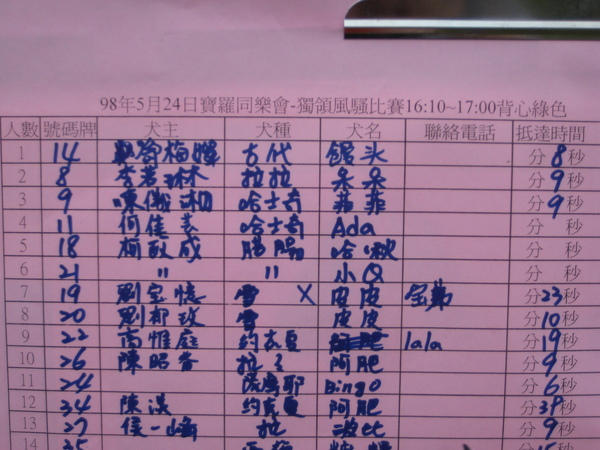 98年5月24日寶羅同樂會-獨領風騷比賽16:10~17:00背心綠色
人數 號碼牌 犬主 犬種 犬名 聯絡電話 抵達時間
1 14 梅 古代 饅头 分8秒
2 8 李若琳 拉拉 呆呆 分9秒
3 9 陳湘 哈士奇 菲菲 分9秒
4 11 何佳 哈士奇 Ada 分 秒
5 18 柯成 腸腸 哈啾 分 秒
6 21 〃 〃 小Q 分 秒
7 19 劉宝憶 雪 X 皮皮 分23秒
8 20 劉郁玫 雪 皮皮 分10秒
9 22 惟庭 約克夏 lala 分19秒
10 26 陳昭香 拉 阿肥 分9秒
11 24 薩摩耶 Bingo 分6秒
12 34 陳 約克夏 阿肥 分 秒
13 27 侯一峰 拉 波比 分9秒
14 35